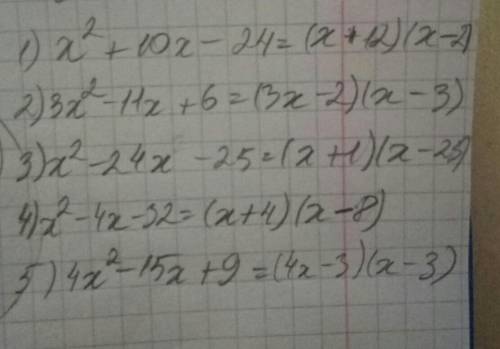 1) x² + 10x - 24 = (x + 12)(x - 2)
2) 3x² - 11x + 6 = (3x - 2)(x - 3)
3) x² - 24x - 25 = (x + 1)(x - 25)
4) x² - 4x - 32 = (x + 4)(x - 8)
5) 4x² - 15x + 9 = (4x - 3)(x - 3)